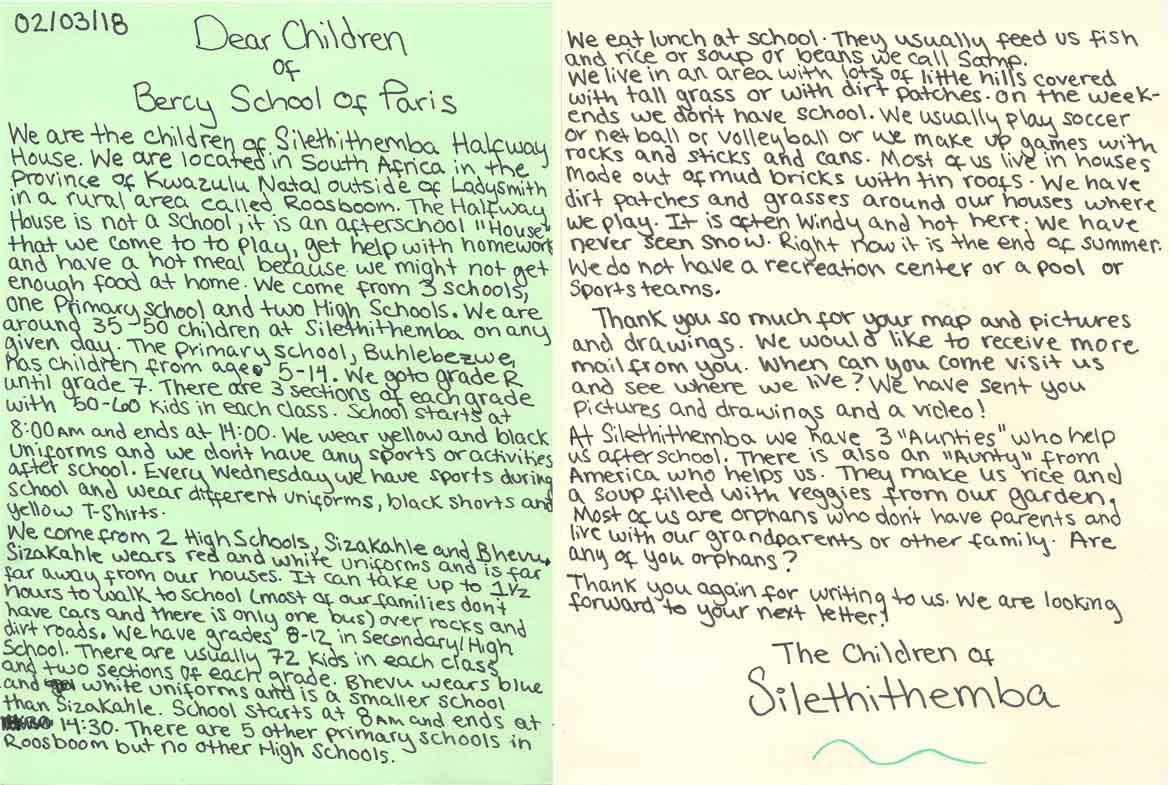 02/03/18
Dear Children
of
Bercy School of Paris
We are the children of Silethithemba Halfway
House. We are located in South Africa in the
Province of Kwazulu Natal outside of Ladysmith
in a rural area called Roosboom. The Halfway
House is not a school, it is an afterschool "House"
that we come to to play, get help with homework
and have a hot meal because we might not get
enough food at home. We come from 3 schools,
one Primary school and two High Schools. We are
around 35-50 children at Silethithemba on any
given day. The primary school, Buhlebezwe,
has children from ages 5-14. We go to grade R
until grade 7. There are 3 sections of each grade
with 50-60 kids in each class. School starts at
8:00AM and ends at 14:00. We wear yellow and black
uniforms and we don't have any sports or activities
after school. Every Wednesday we have sports during
school and wear different uniforms, black shorts and
yellow T-Shirts.
We come from 2 High Schools, Sizakahle and Bhevu.
Sizakahle wears red and white uniforms and is far
far away from our houses. It can take up to 1 1/2
hours to walk to school (most of our families don't
have cars and there is only one bus) over rocks and
dirt roads. We have grades 8-12 in Secondary/High
School. There are usually 72 kids in each class
and two sections of each grade. Bhevu wears blue
and white uniforms and is a smaller school
than Sizakahle. School starts at 8AM and ends at
14:30. There are 5 other primary schools in
Roosboom but no other High Schools.
We eat lunch at school. They usually feed us fish
and rice or soup or beans we call Samp.
We live in an area with lots of little hills covered
with tall grass or with dirt patches. On the week-
ends we don't have school. We usually play soccer
or netball or volleyball or we make up games with
rocks and sticks and cans. Most of us live in houses
made out of mud bricks with tin roofs. We have
dirt patches and grasses around our houses where
we play. It is often windy and hot here. We have
never seen snow. Right now it is the end of summer.
We do not have a recreation center or a pool or
sports teams.
Thank you so much for your map and pictures
and drawings. We would like to receive more
mail from you. When can you come visit us
and see where we live? We have sent you
pictures and drawings and a video!
At Silethithemba we have 3 "Aunties" who help
us after school. There is also an "Aunty" from
America who helps us. They make us rice and
a soup filled with veggies from our garden.
Most of us are orphans who don't have parents and
live with our grandparents or other family. Are
any of you orphans?
Thank you again for writing to us. We are looking
forward to your next letter!
The Children of
Silethithemba